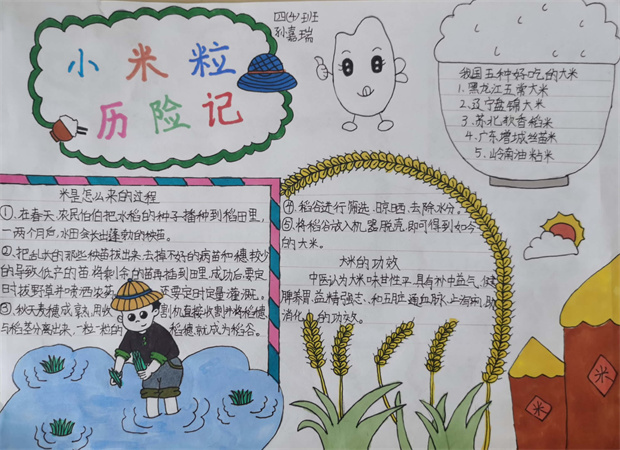 四(4)班
孙嘉瑞
小米粒
历险记
我国五种好吃的大米
1.黑龙江五常大米
2.辽宁盘锦大米
3.苏北软香稻米
4.广东增城丝苗米
5.岭南油粘米
米是怎么来的过程
①.在春天,农民伯伯把水稻的种子播种到稻田里,
一两个月后,水田会长出蓬勃的秧苗。
②.把乱长的那些秧苗拔出来,去掉不好的病苗和穗较少
的导致低产的苗,将剩余的苗再插到田里,成功后要定
时拔野草并喷洒农药
要定时定量灌溉。
③.秋天麦穗成熟,用收割机直接收割并将稻穗
与稻茎分离出来,一粒一粒的
稻穗就成为稻谷。
④.稻谷进行筛选、晾晒、去除水分。
⑤.将稻谷放入机器脱壳,即可得到如今
的大米。
大米的功效
中医认为大米味甘性平,具有补中益气、健
脾养胃、益精强志、和五脏、通血脉、止
消化
的功效。
米
米